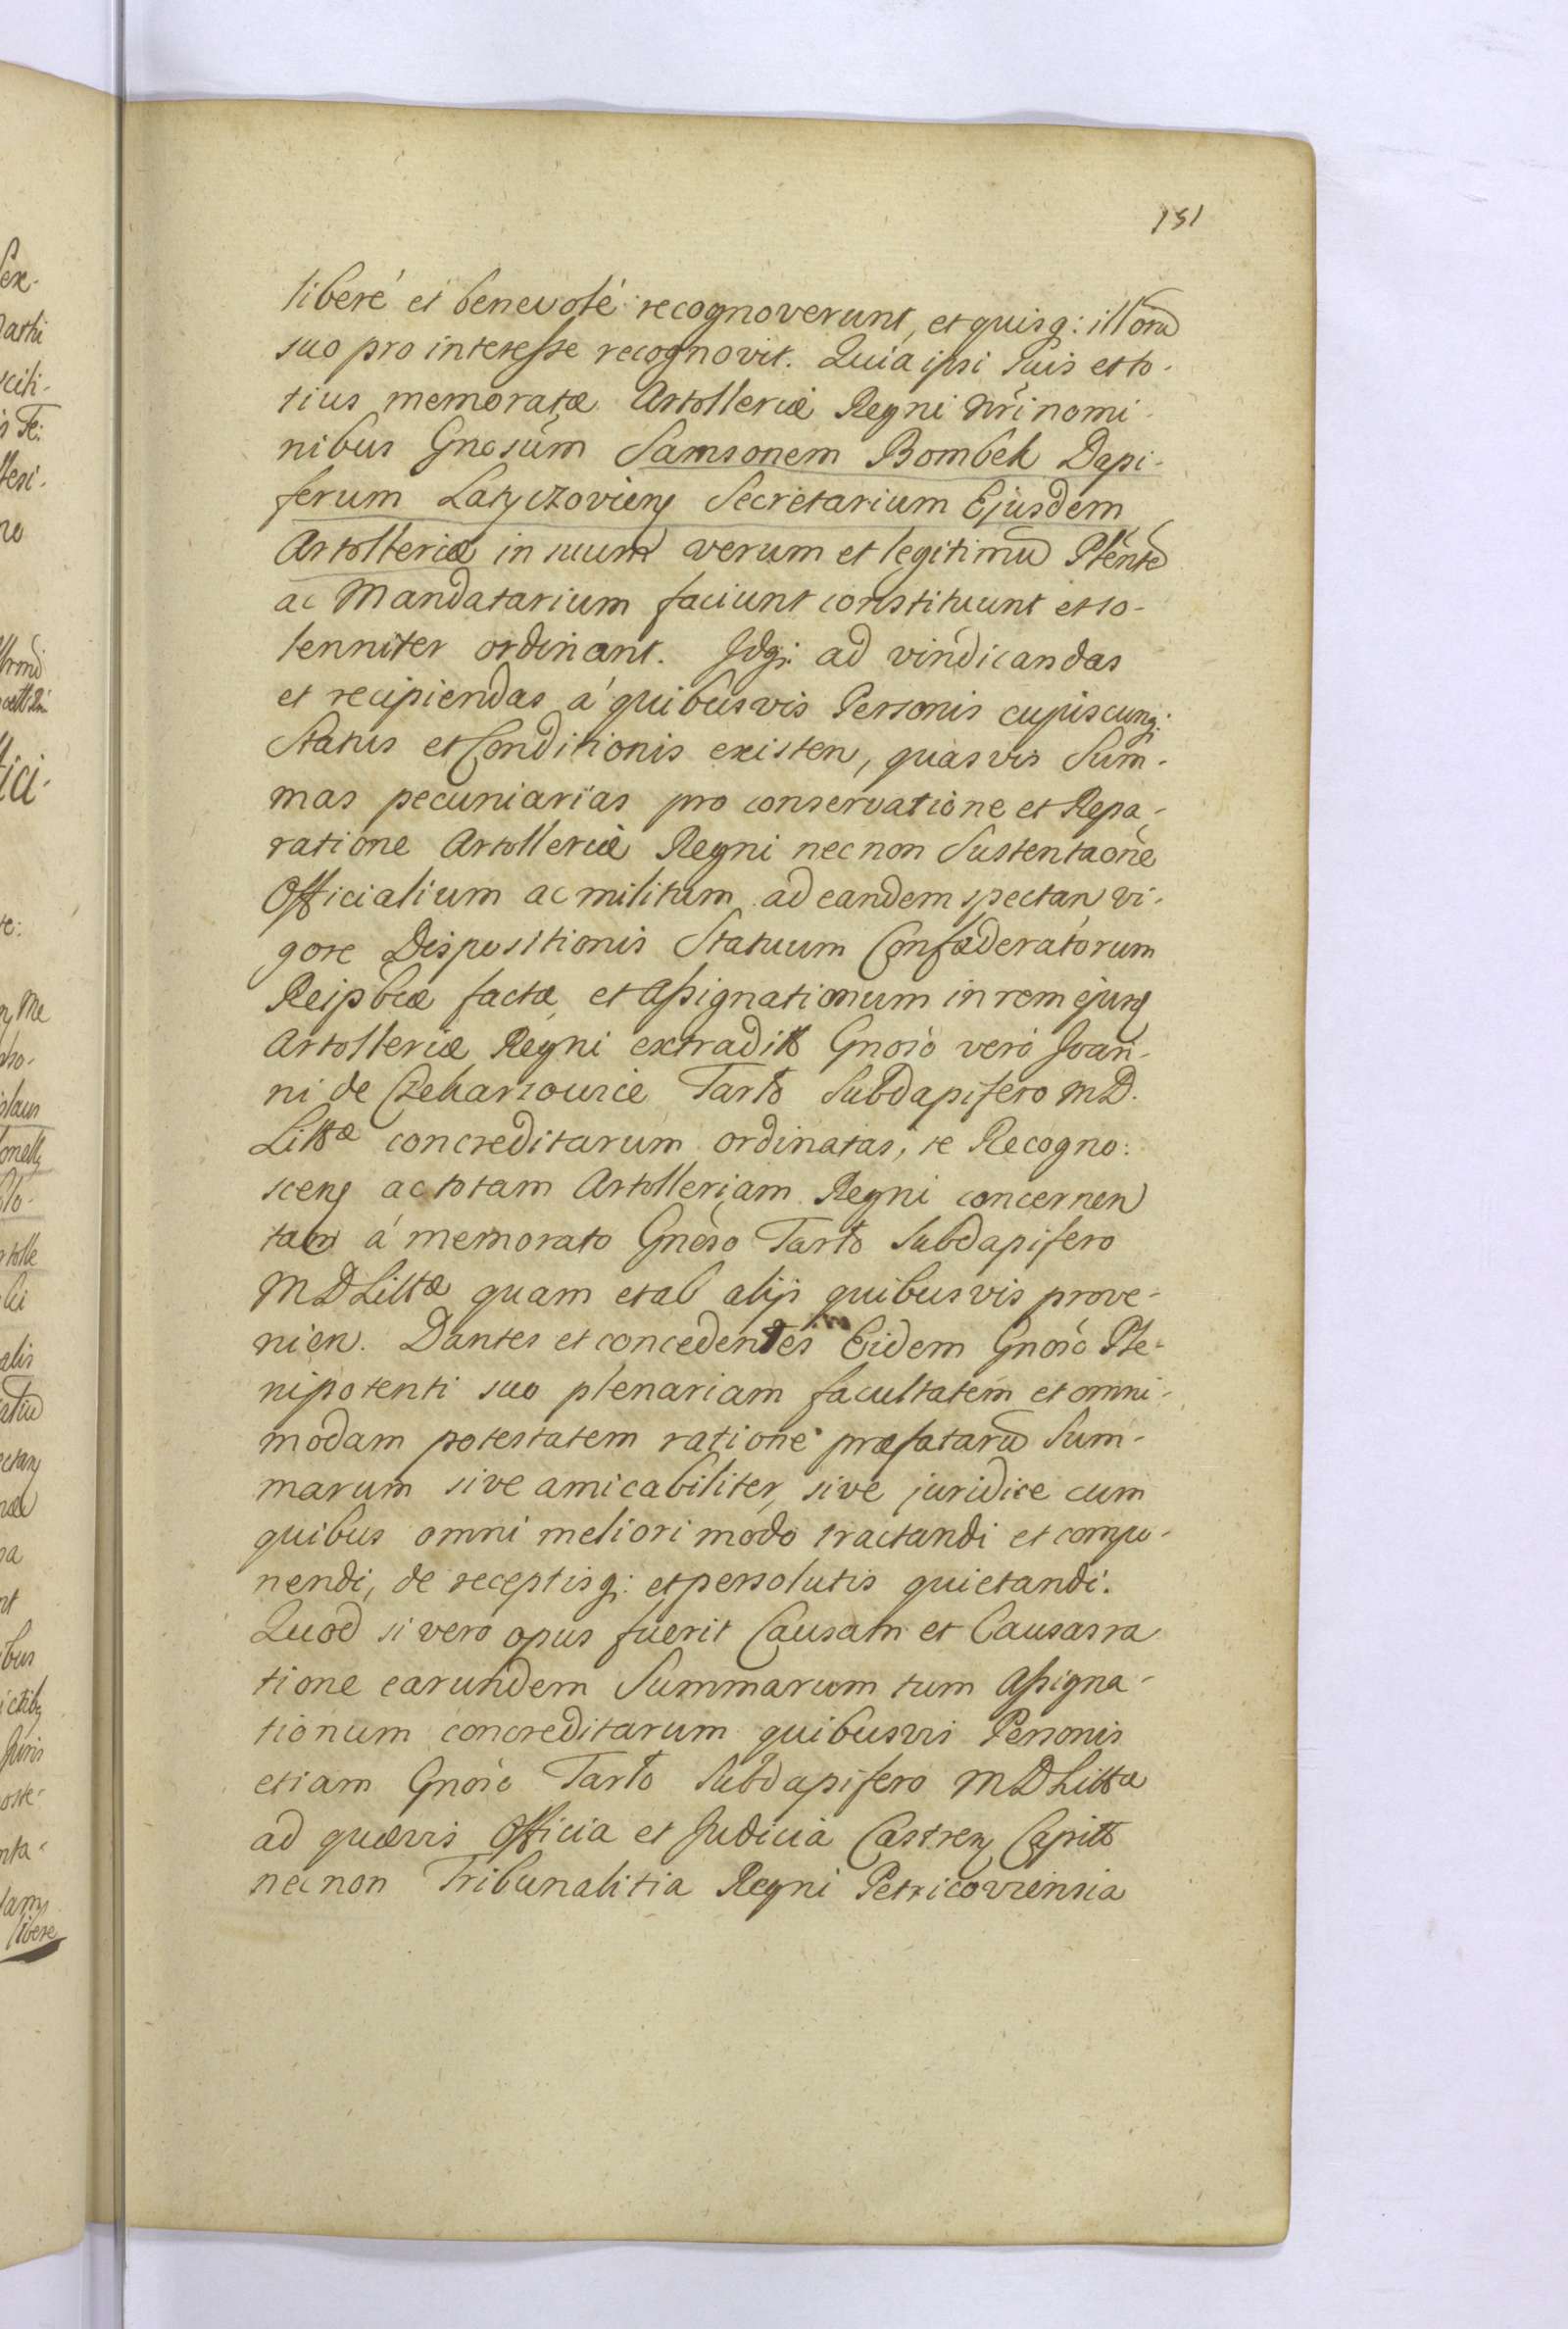 151
liberé et benevolé recognoverunt, et quisq: illorū
suo pro interesse recognovit. Quia ipsi suis et to-
tius memoratæ Artolleriæ Regni nr̃i nomi-
nibus Gnosũm Samsonem Bombek Dapi-
ferum Latyczovien Secretarium Ejusdem
Artolleriæ in suum verum et legitimū Plẽntē
ac Mandatarium faciunt constituunt et so-
lenniter ordinant. Idq; ad vindicandas
et recipiendas á quibusvis Personis cujuscunq:
Status et Conditionis existen, quasvis Sum-
mas pecuniarias pro conservatione et Repa-
ratione Artolleriæ Regni nec non Sustentaõne
Officialium ac militum ad eandem spectan, vi-
gore Dispositionis Statuum Confæderatorum
Reipbcæ factæ, et Assignationum in rem ejusq
Artolleriæ Regni extradittt Gnoso vero Joan-
ni de Czekarzowice Tarło Subdapifero M D.
Littæ concreditarum ordinatas, se Recogno:
scen ac totam Artolleriam Regni concernen
tam á memorato Gnoso Tarło Subdapifero
M D Littæ quam et ab alijs quibusvis prove-
nien. Dantes et concedentes Eidem Gnoso Ple-
nipotenti suo plenariam facultatem et omni-
modam potestatem ratione præfatarū Sum-
marum sive amicabiliter, sive juridice cum
quibus omni meliori modo tractandi et compo-
nendi, de receptisq: et persolutis quietandi.
Quod si vero opus fuerit Causam et Causas ra
tione earundem Summarum tum Assigna-
tionum concreditarum quibusvis Personis
etiam Gnoso Tarło Subdapifero M D Littæ
ad quævis Officia et Judicia Castren Capitt
nec non Tribunalitia Regni Petricoviensia